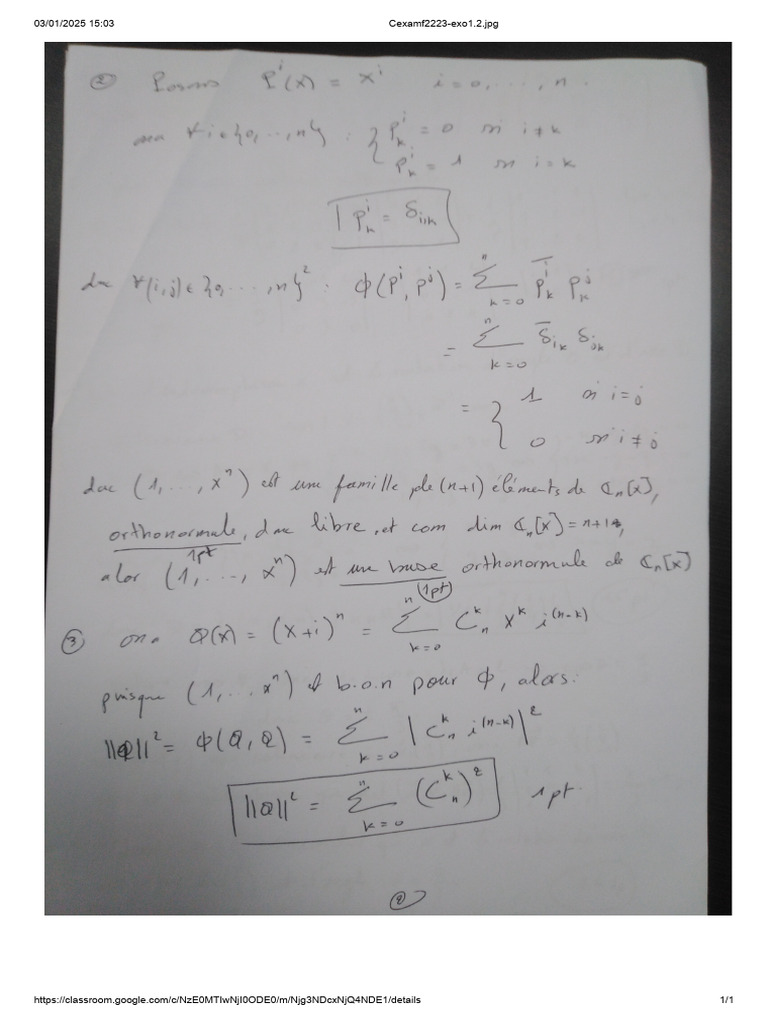 03/01/2025 15:03 Cexamf2223-exo1.2.jpg
② Posons P^i(X) = X^i i = 0, ..., n.
on a ∀ i ∈ {0, ..., n} : { P_k^i = 0 si i ≠ k
P_k^i = 1 si i = k
P_k^i = δ_{i,k}
donc ∀(i,j) ∈ {0, ..., n}² : ϕ(P^i, P^j) = Σ_{k=0}^{n} \overline{P_k^i} P_k^j
= Σ_{k=0}^{n} \overline{δ}_{ik} δ_{jk}
= { 1 si i = j
0 si i ≠ j
donc (1, ..., X^n) est une famille de (n+1) éléments de ℂ_n[X],
orthonormale, donc libre, et com dim ℂ_n[X] = n+1,
1pt
alor (1, ..., X^n) est une base orthonormale de ℂ_n[X]
1pt
③ on a Q(X) = (X+i)^n = Σ_{k=0}^{n} C_n^k X^k i^{(n-k)}
puisque (1, ..., X^n) est b.o.n pour ϕ, alors:
||Q||² = ϕ(Q, Q) = Σ_{k=0}^{n} | C_n^k i^{(n-k)} |²
||Q||² = Σ_{k=0}^{n} (C_n^k)² 1pt.
②
https://classroom.google.com/c/NzE0MTIwNjI0ODE0/m/Njg3NDcxNjQ4NDE1/details 1/1